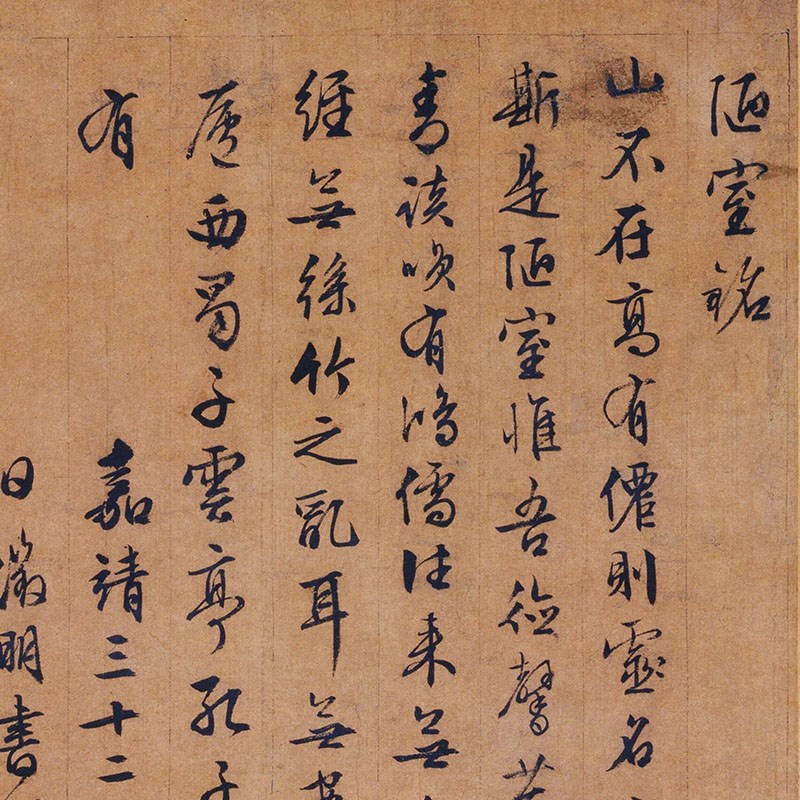 陋室銘
山不在高有僊則靈名
斯是陋室惟吾德馨
青談咲有鴻儒往來無
經無絲竹之亂耳無
廬西蜀子雲亭孔子
有 嘉靖三十二
日徵明書